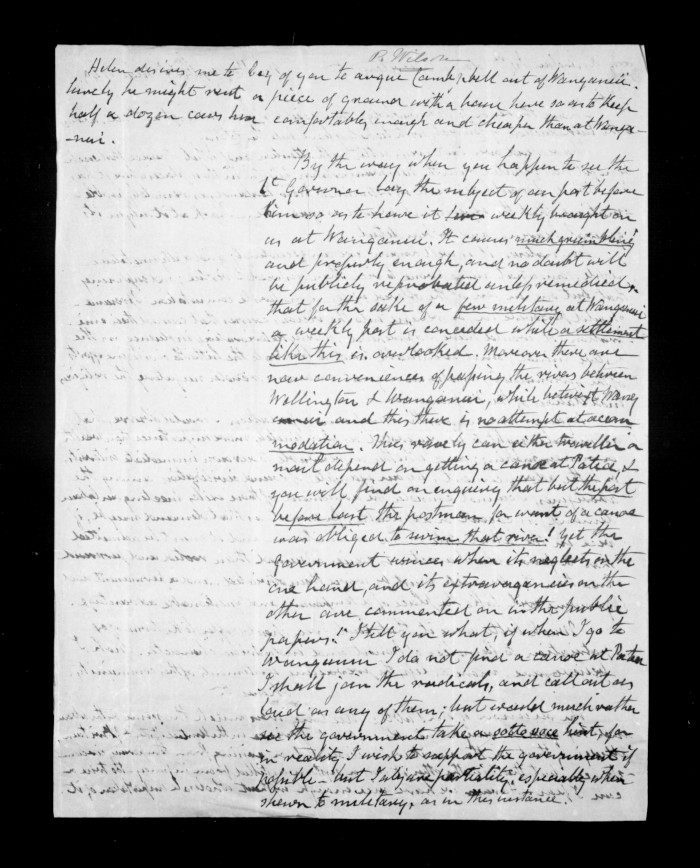 P. Wilson
Helen desires me to beg of you to argue Campbell out of Wanganui.
Surely he might rent a piece of ground with a house here so as to keep
half a dozen cows here comfortably enough and cheaper than at Wanga-
-nui.
By the way when you happen to see the
Lt Governor lay the subject of our post before
him so as to have it weekly brought on
as at Wanganui. It causes much grumbling
and properly enough, and no doubt will
be publicly reprobated unless remedied,
that for the sake of a few military at Wanganui
a weekly post is conceded while a settlement
like this is overlooked. Moreover there are
now conveniences of passing the rivers between
Wellington & Wanganui, while betwixt Wang
anui and this there is no attempt at accom
modation. Thus rarely can either traveller or
mail depend on getting a canoe at Patea, &
you will find on enquiry that but the post
before last the postman for want of a canoe
was obliged to swim that river! Yet the
Government winces when its neglects on the
one hand, and its extravagancies on the
other are commented on in the public
papers! I tell you what, if when I go to
Wanganui I do not find a canoe at Patea
I shall join the radicals, and call out as
loud as any of them; but would much rather
see the government take a sotto voce hint, for
in reality I wish to support the government if
possible - but I abjure partiality especially when
shewn to military, as in this instance.